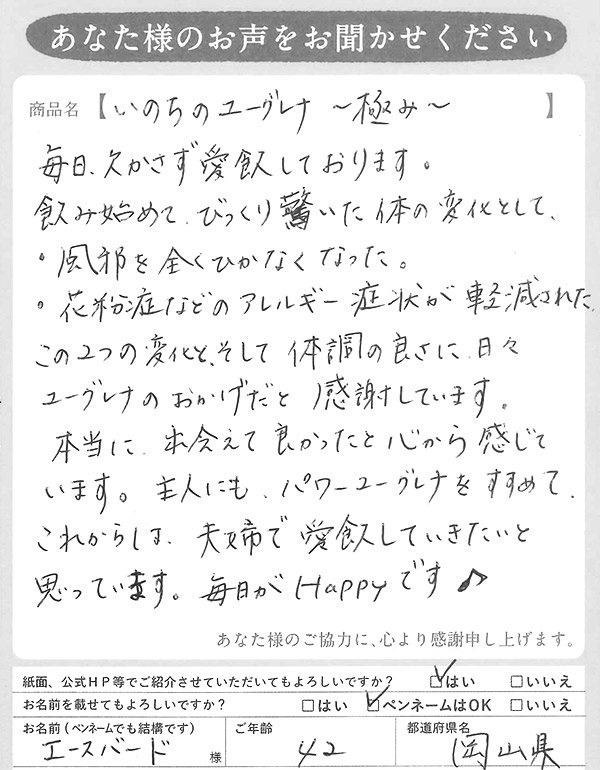 あなた様のお声をお聞かせください
商品名【いのちのユーグレナ 〜極み〜 】
毎日、欠かさず愛飲しております。
飲み始めて、びっくり驚いた体の変化として、
・風邪を全くひかなくなった。
・花粉症などのアレルギー症状が軽減された。
この2つの変化と、そして体調の良さに、日々
ユーグレナのおかげだと感謝しています。
本当に、出会えて良かったと心から感じて
います。主人にも、パワーユーグレナをすすめて、
これからは、夫婦で愛飲していきたいと
思っています。毎日がHappyです♪
あなた様のご協力に、心より感謝申し上げます。
紙面、公式HP等でご紹介させていただいてもよろしいですか? ☑はい □いいえ
お名前を載せてもよろしいですか? □はい ☑ペンネームはOK □いいえ
お名前(ペンネームでも結構です) ご年齢 都道府県名
エースバード 様 42 岡山県